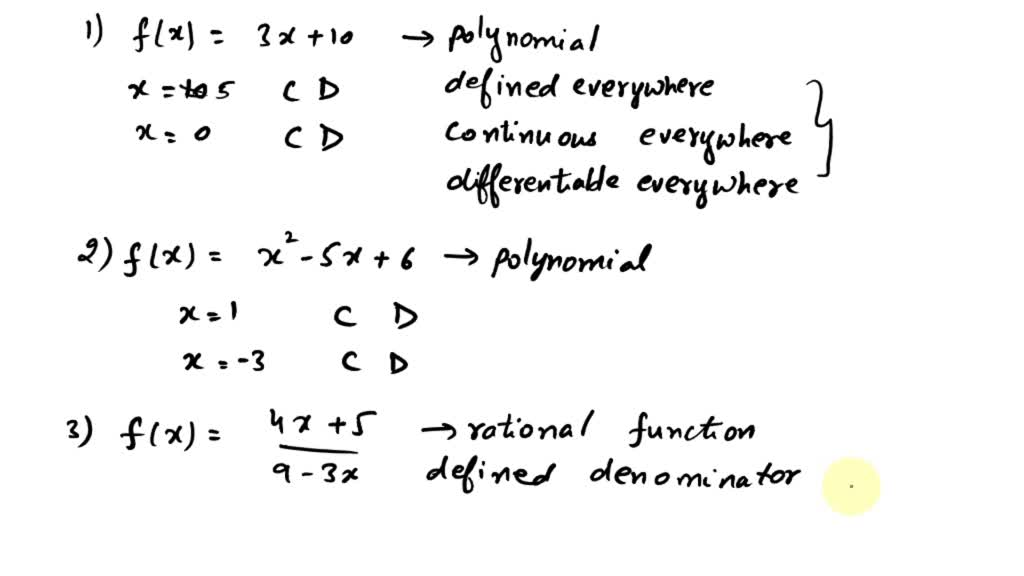 1) f(x) = 3x + 10 → polynomial
x = 5 C D defined everywhere
x = 0 C D continuous everywhere
differentiable everywhere
2) f(x) = x² - 5x + 6 → polynomial
x = 1 C D
x = -3 C D
3) f(x) = 4x + 5 / 9 - 3x → rational function
defined denominator